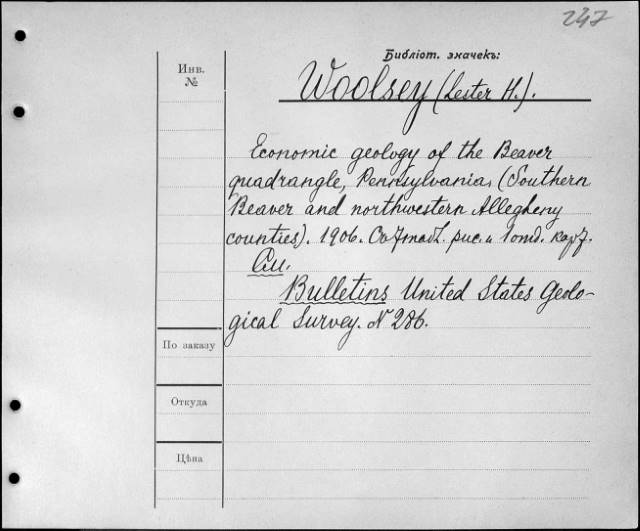 247
Библіот. значекъ:
Инв.
№
Woolsey (Lester H.).
Economic geology of the Beaver
quadrangle, Pennsylvania, (Southern
Beaver and northwestern Allegheny
counties). 1906. Съ 7 табл. рис. и 1 отд. карт.
См.
Bulletins United States Geolo-
gical Survey. N 286.
По заказу
Откуда
Цѣна